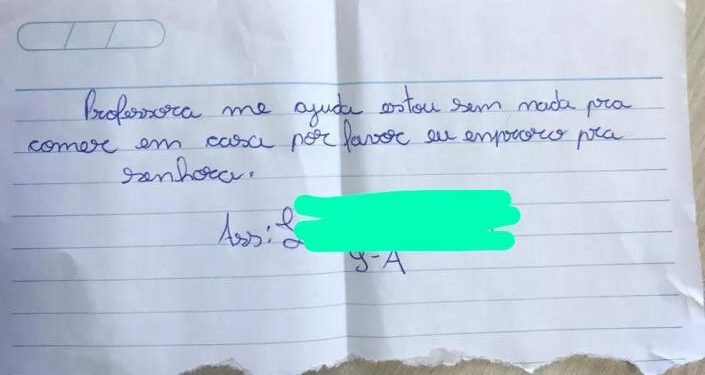 Professora me ajuda estou sem nada pra
comer em casa por favor eu emporoco pra
senhora.
Ass: L
9-A